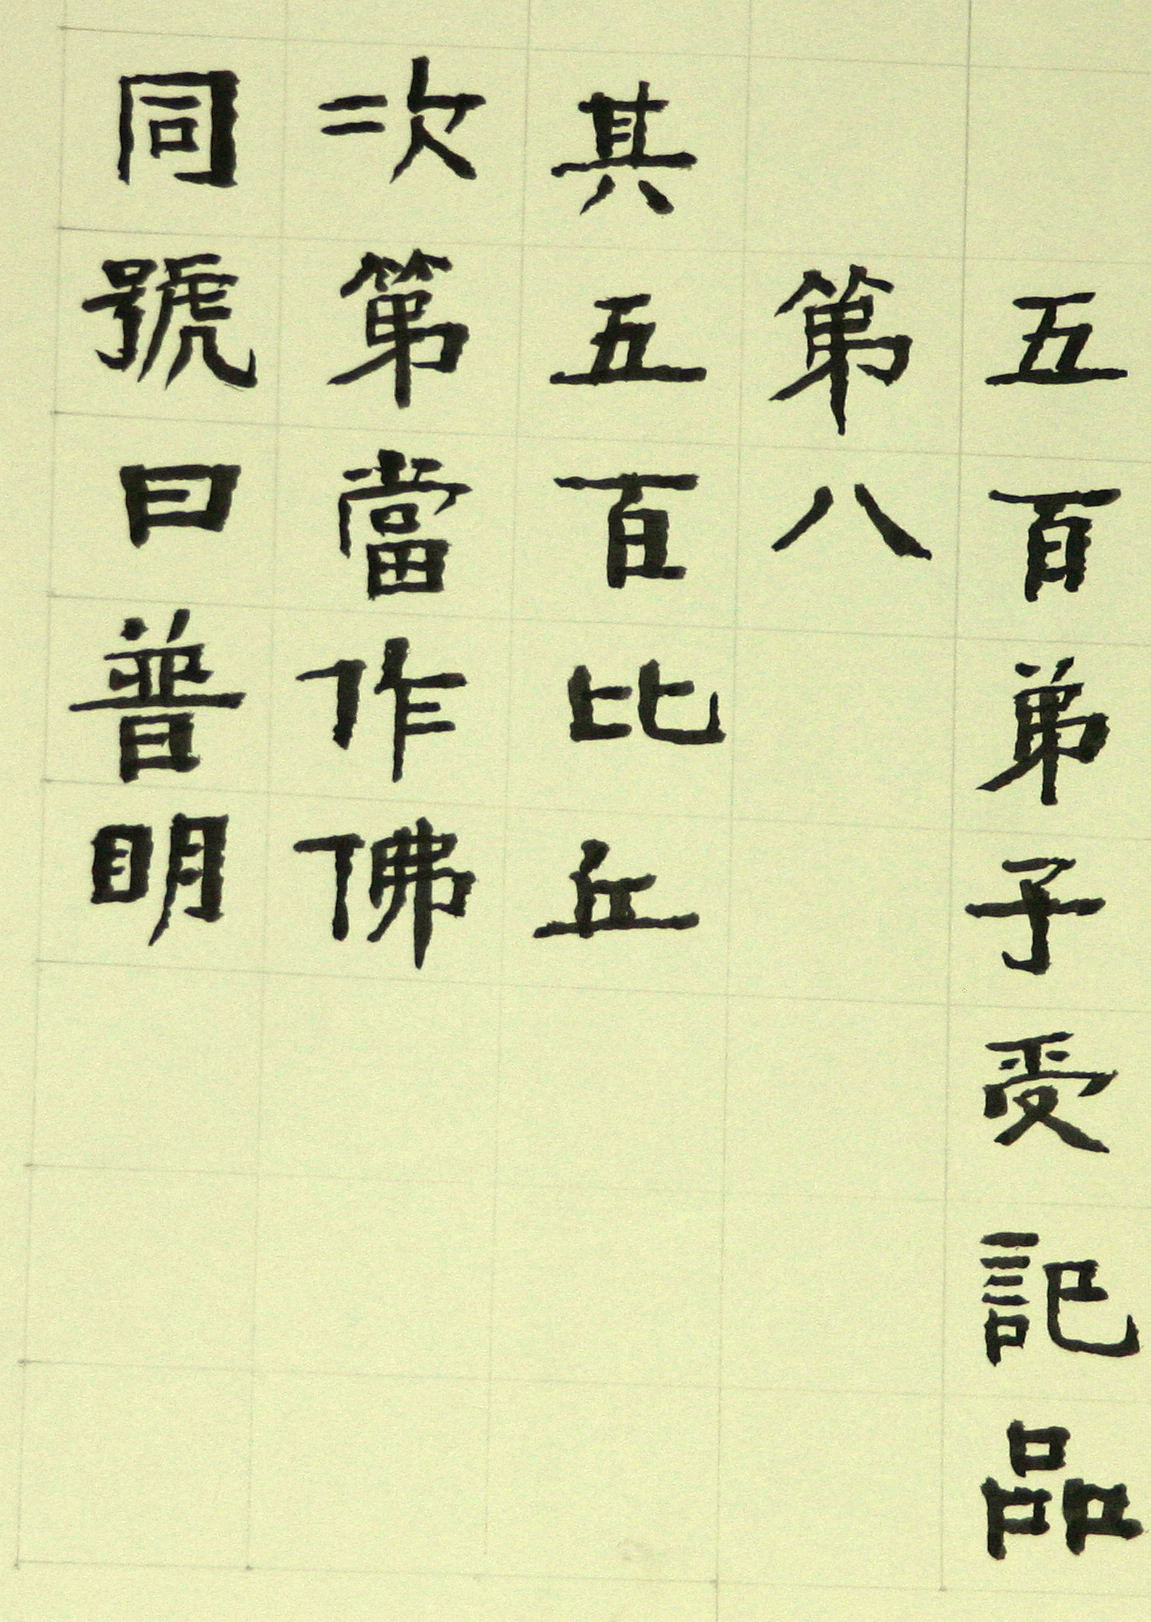 五百弟子受記品
第八
其五百比丘
次第當作佛
同號曰普明